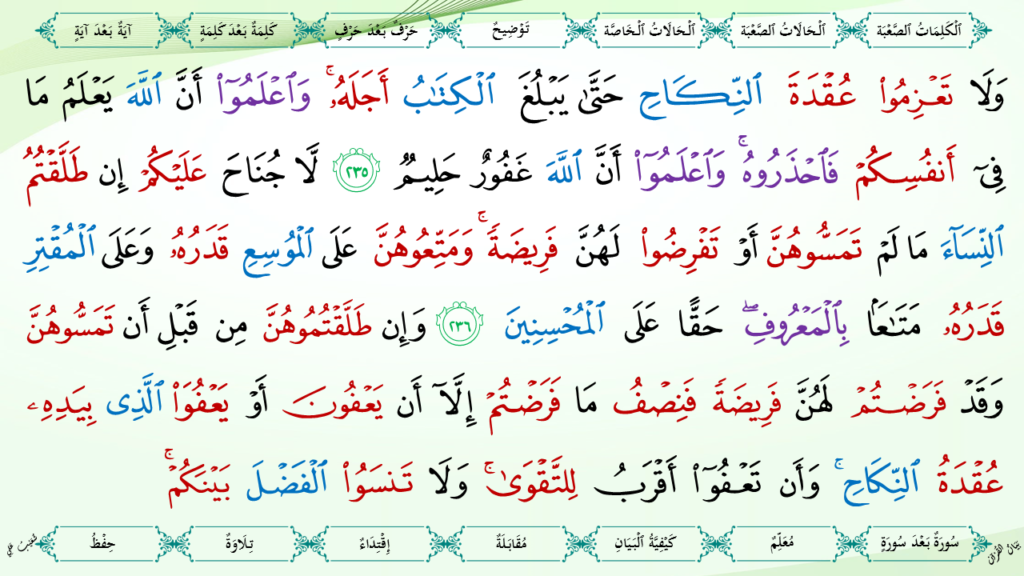 اَلْكَلِمَاتُ الصَّعْبَة
اَلْحَالَاتُ الصَّعْبَة
اَلْحَالَاتُ الْخَاصَّة
تَوْضِيحٌ
حَرْفٌ بَعْدَ حَرْفٍ
كَلِمَةٌ بَعْدَ كَلِمَةٍ
آيَةٌ بَعْدَ آيَةٍ
وَلَا تَعۡزِمُواْ عُقۡدَةَ ٱلنِّكَاحِ حَتَّىٰ يَبۡلُغَ ٱلۡكِتَٰبُ أَجَلَهُۥۚ وَٱعۡلَمُوٓاْ أَنَّ ٱللَّهَ يَعۡلَمُ مَا
فِيٓ أَنفُسِكُمۡ فَٱحۡذَرُوهُۚ وَٱعۡلَمُوٓاْ أَنَّ ٱللَّهَ غَفُورٌ حَلِيمٞ ٢٣٥ لَّا جُنَاحَ عَلَيۡكُمۡ إِن طَلَّقۡتُمُ
ٱلنِّسَآءَ مَا لَمۡ تَمَسُّوهُنَّ أَوۡ تَفۡرِضُواْ لَهُنَّ فَرِيضَةٗۚ وَمَتِّعُوهُنَّ عَلَى ٱلۡمُوسِعِ قَدَرُهُۥ وَعَلَى ٱلۡمُقۡتِرِ
قَدَرُهُۥ مَتَٰعَۢا بِٱلۡمَعۡرُوفِۖ حَقًّا عَلَى ٱلۡمُحۡسِنِينَ ٢٣٦ وَإِن طَلَّقۡتُمُوهُنَّ مِن قَبۡلِ أَن تَمَسُّوهُنَّ
وَقَدۡ فَرَضۡتُمۡ لَهُنَّ فَرِيضَةٗ فَنِصۡفُ مَا فَرَضۡتُمۡ إِلَّآ أَن يَعۡفُونَ أَوۡ يَعۡفُوَاْ ٱلَّذِي بِيَدِهِۦ
عُقۡدَةُ ٱلنِّكَاحِۚ وَأَن تَعۡفُوٓاْ أَقۡرَبُ لِلتَّقۡوَىٰۚ وَلَا تَنسَوُاْ ٱلۡفَضۡلَ بَيۡنَكُمۡۚ
سُورَةٌ بَعْدَ سُورَةٍ
مُعَلِّمٌ
كَيْفِيَّةُ الْبَيَانِ
مُقَابَلَةٌ
إِقْتِدَاءٌ
تِلَاوَةٌ
حِفْظٌ
بَيَانُ الْقُرْآنِ